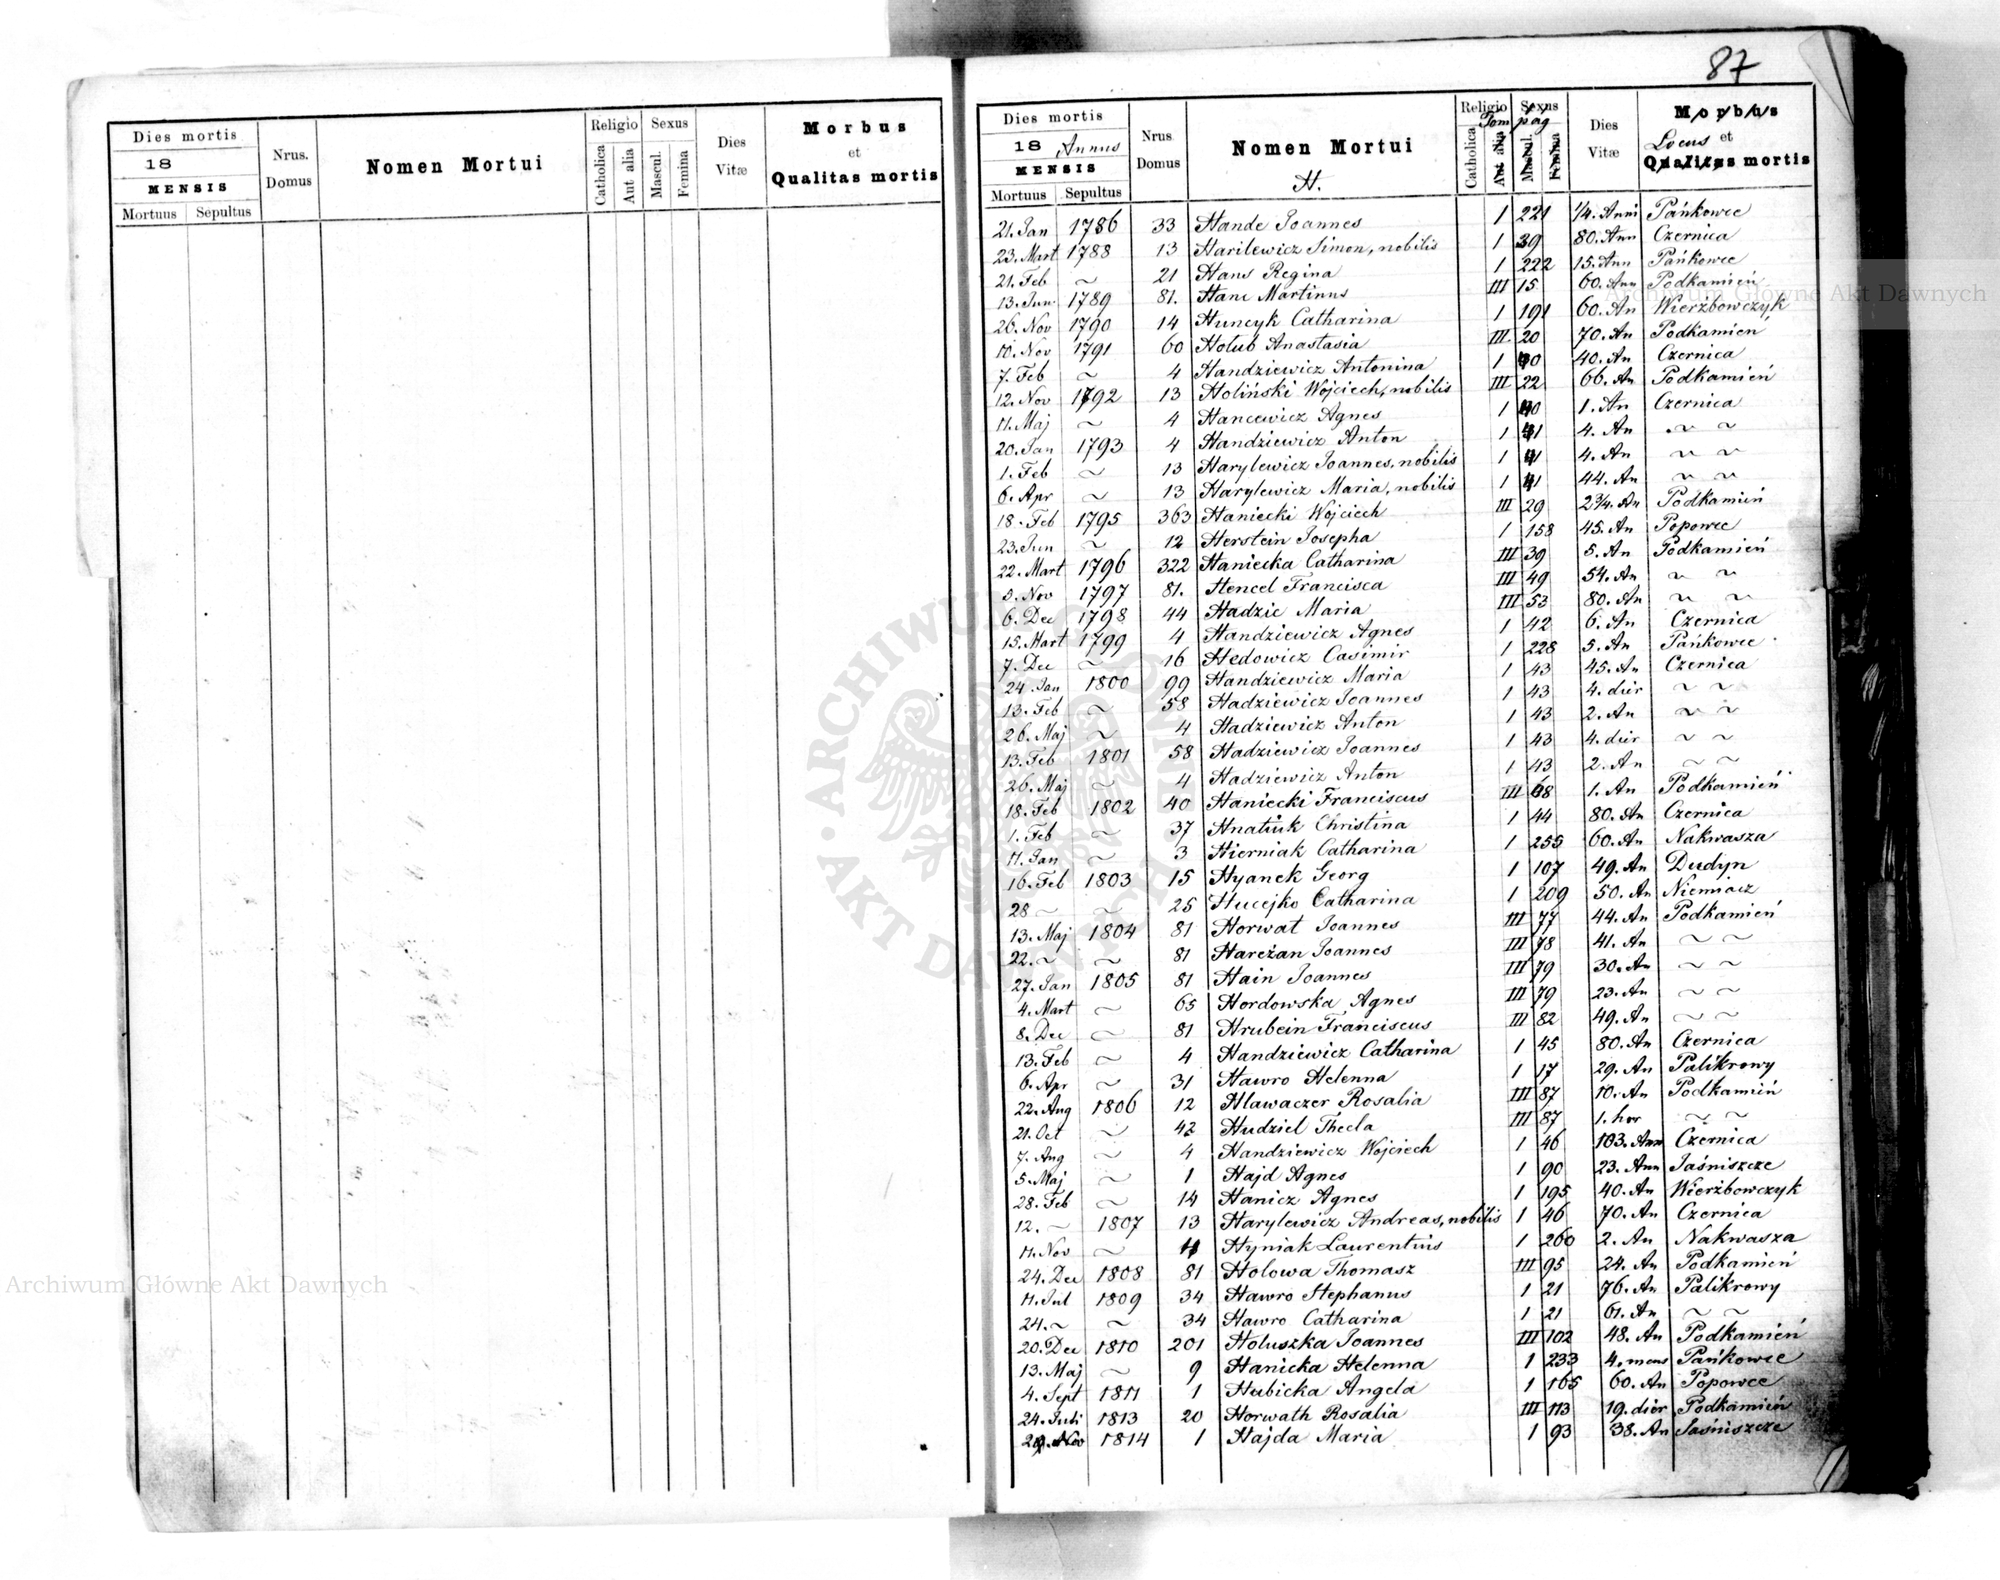 87
Dies mortis
18
MENSIS
Mortuus Sepultus
Nrus. Domus
Nomen Mortui
Religio
Catholica
Aut alia
Sexus
Mascul.
Femina
Dies Vitæ
Morbus
et
Qualitas mortis
Dies mortis
18 Annus
MENSIS
Mortuus Sepultus
Nrus. Domus
Nomen Mortui
H.
Religio Sexus
Tom pag
Catholica
Aut alia
Mascul.
Femina
Dies Vitæ
Morbus
Locus et
Qualitas mortis
21. Jan 1786 33 Hande Joannes 1 221 1/4. Anni Pańkowce
23. Mart 1788 13 Harilewicz Simon, nobilis 1 39 80. Ann Czernica
21. Feb ~ 21 Hans Regina 1 222 15. Ann Pańkowce
13. Jun 1789 81. Hanc Martinus III 15 60. Ann Podkamień
26. Nov 1790 14 Huncyk Catharina 1 191 60. An Wierzbowczyk
10. Nov 1791 60 Holub Anastasia III 20 70. An Podkamien
7. Feb ~ 4 Handziewicz Antonina 1 40 40. An Czernica
12. Nov 1792 13 Holiński Wojciech, nobilis III 22 66. An Podkamień
11. Maj ~ 4 Hancewicz Agnes 1 40 1. An Czernica
20. Jan 1793 4 Handziewicz Anton 1 41 4. An ~ ~
1. Feb ~ 13 Harylewicz Joannes, nobilis 1 41 4. An ~ ~
6. Apr ~ 13 Harylewicz Maria, nobilis 1 41 44. An ~ ~
18. Feb 1795 363 Haniecki Wojciech III 29 2 3/4. An Podkamień
23. Jun ~ 12 Herstein Josepha 1 158 45. An Popowce
22. Mart 1796 322 Haniecka Catharina III 39 5. An Podkamień
5. Nov 1797 81. Hencel Francisca III 49 54. An ~ ~
6. Dec 1798 44 Hadzic Maria III 53 80. An ~ ~
15. Mart 1799 4 Handziewicz Agnes 1 42 6. An Czernica
7. Dec ~ 16 Hedowicz Casimir 1 228 5. An Pańkowce
24. Jan 1800 99 Handziewicz Maria 1 43 45. An Czernica
13. Feb ~ 58 Hadziewicz Joannes 1 43 4. dier ~ ~
26. Maj ~ 4 Hadziewicz Anton 1 43 2. An ~ ~
13. Feb 1801 58 Hadziewicz Joannes 1 43 4. dier ~ ~
26. Maj ~ 4 Hadziewicz Anton 1 43 2. An ~ ~
18. Feb 1802 40 Haniecki Franciscus III 68 1. An Podkamień
1. Feb ~ 37 Hnatiuk Christina 1 44 80. An Czernica
11. Jan ~ 3 Hierniak Catharina 1 255 60. An Nakwasza
16. Feb 1803 15 Hyanek Georg 1 107 49. An Dudyn
28 ~ ~ 25 Hucejko Catharina 1 209 50. An Niemiacz
13. Maj 1804 81 Horwat Joannes III 77 44. An Podkamień
22. ~ ~ 81 Hareżan Joannes III 78 41. An ~ ~
27. Jan 1805 81 Hain Joannes III 79 30. An ~ ~
4. Mart ~ 65 Hordowska Agnes III 79 23. An ~ ~
8. Dec ~ 81 Hrubein Franciscus III 82 49. An ~ ~
13. Feb ~ 4 Handziewicz Catharina 1 45 80. An Czernica
6. Apr ~ 31 Hawro Helenna 1 17 29. An Palikrowy
22. Aug 1806 12 Hlawaczer Rosalia III 87 10. An Podkamień
21. Oct ~ 42 Hudziel Thecla III 87 1. hor ~ ~
7. Aug ~ 4 Handziewicz Wojciech 1 46 103. Ann Czernica
5. Maj ~ 1 Hajd Agnes 1 90 23. Ann Jaśniszcze
28. Feb ~ 14 Hanicz Agnes 1 195 40. An Wierzbowczyk
12. ~ 1807 13 Harylewicz Andreas, nobilis 1 46 70. An Czernica
11. Nov ~ Hyniak Laurentius 1 260 2. An Nakwasza
24. Dec 1808 81 Holowa Thomasz III 95 24. An Podkamień
11. Jul 1809 34 Hawro Stephanus 1 21 76. An Palikrowy
24. ~ ~ 34 Hawro Catharina 1 21 61. An ~ ~
20. Dec 1810 201 Holuszka Joannes III 102 48. An Podkamień
13. Maj ~ 9 Hanicka Helenna 1 233 4. mens Pańkowce
4. Sept 1811 1 Hubicka Angela 1 165 60. An Popowce
24. Juli 1813 20 Horwath Rosalia III 113 19. dier Podkamień
Nov 1814 1 Hajda Maria 1 93 38. An Jaśniszcze
Archiwum Główne Akt Dawnych
Archiwum Główne Akt Dawnych
ARCHIWUM GŁÓWNE AKT DAWNYCH